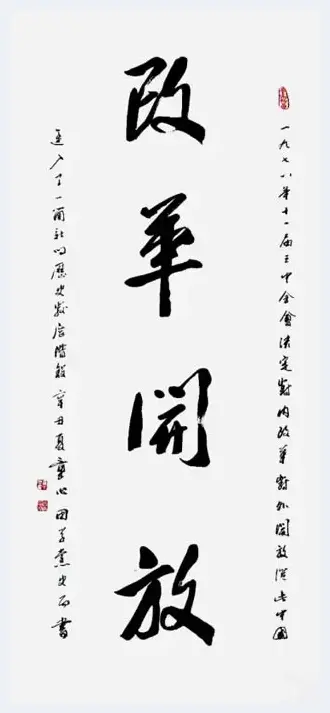 改革開放
一九七八年十一届三中全會決定對内改革對外開放從此中國
進入了一個新的歷史發展階段 辛丑夏童心因学黨史而書